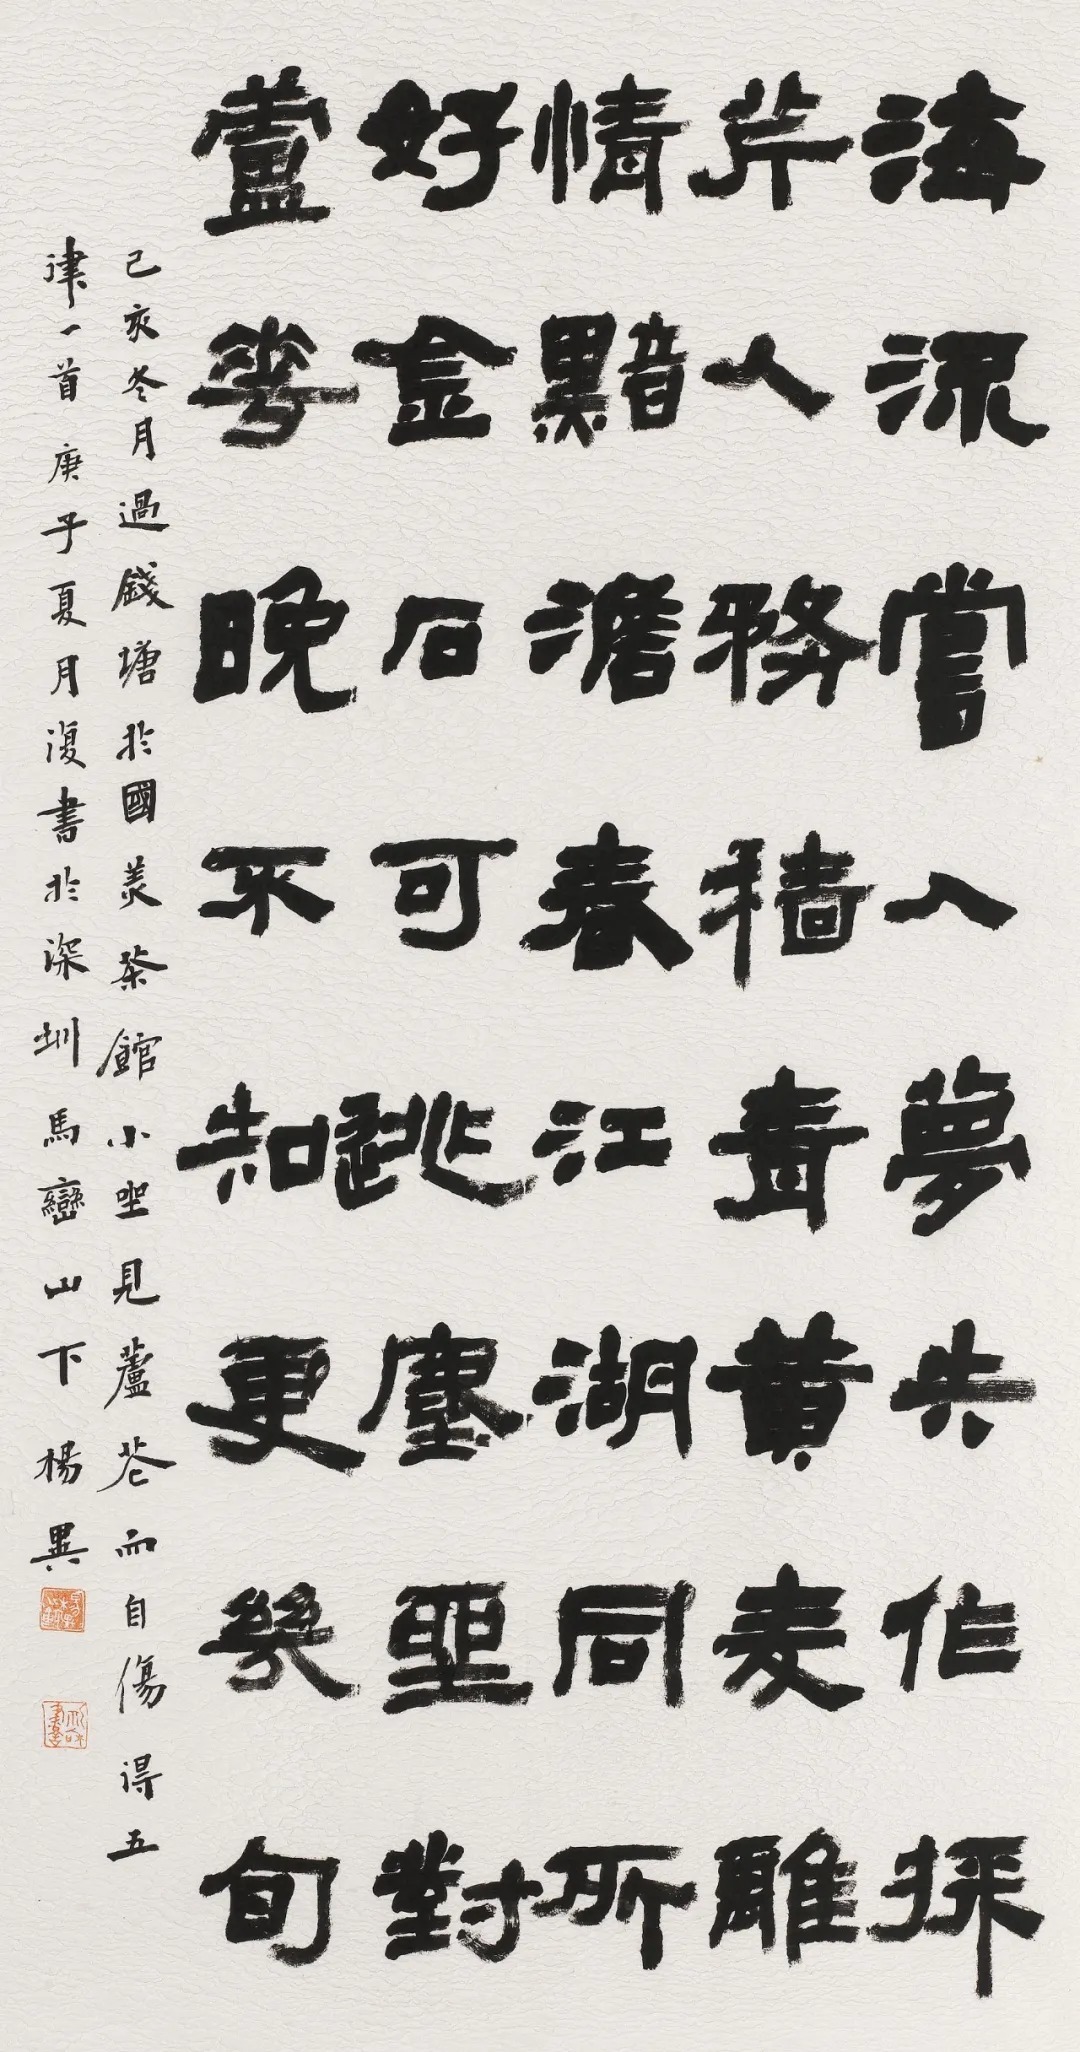 海深嘗入夢共作採
芹人務穡青黃麦離
情黯澹春江湖同所
好金石可逃塵坐對
蘆華晚不知更幾旬
己亥冬月過錢塘於國美茶館小坐見蘆花而自傷得五
律一首庚子夏月復書於深圳馬巒山下楊異